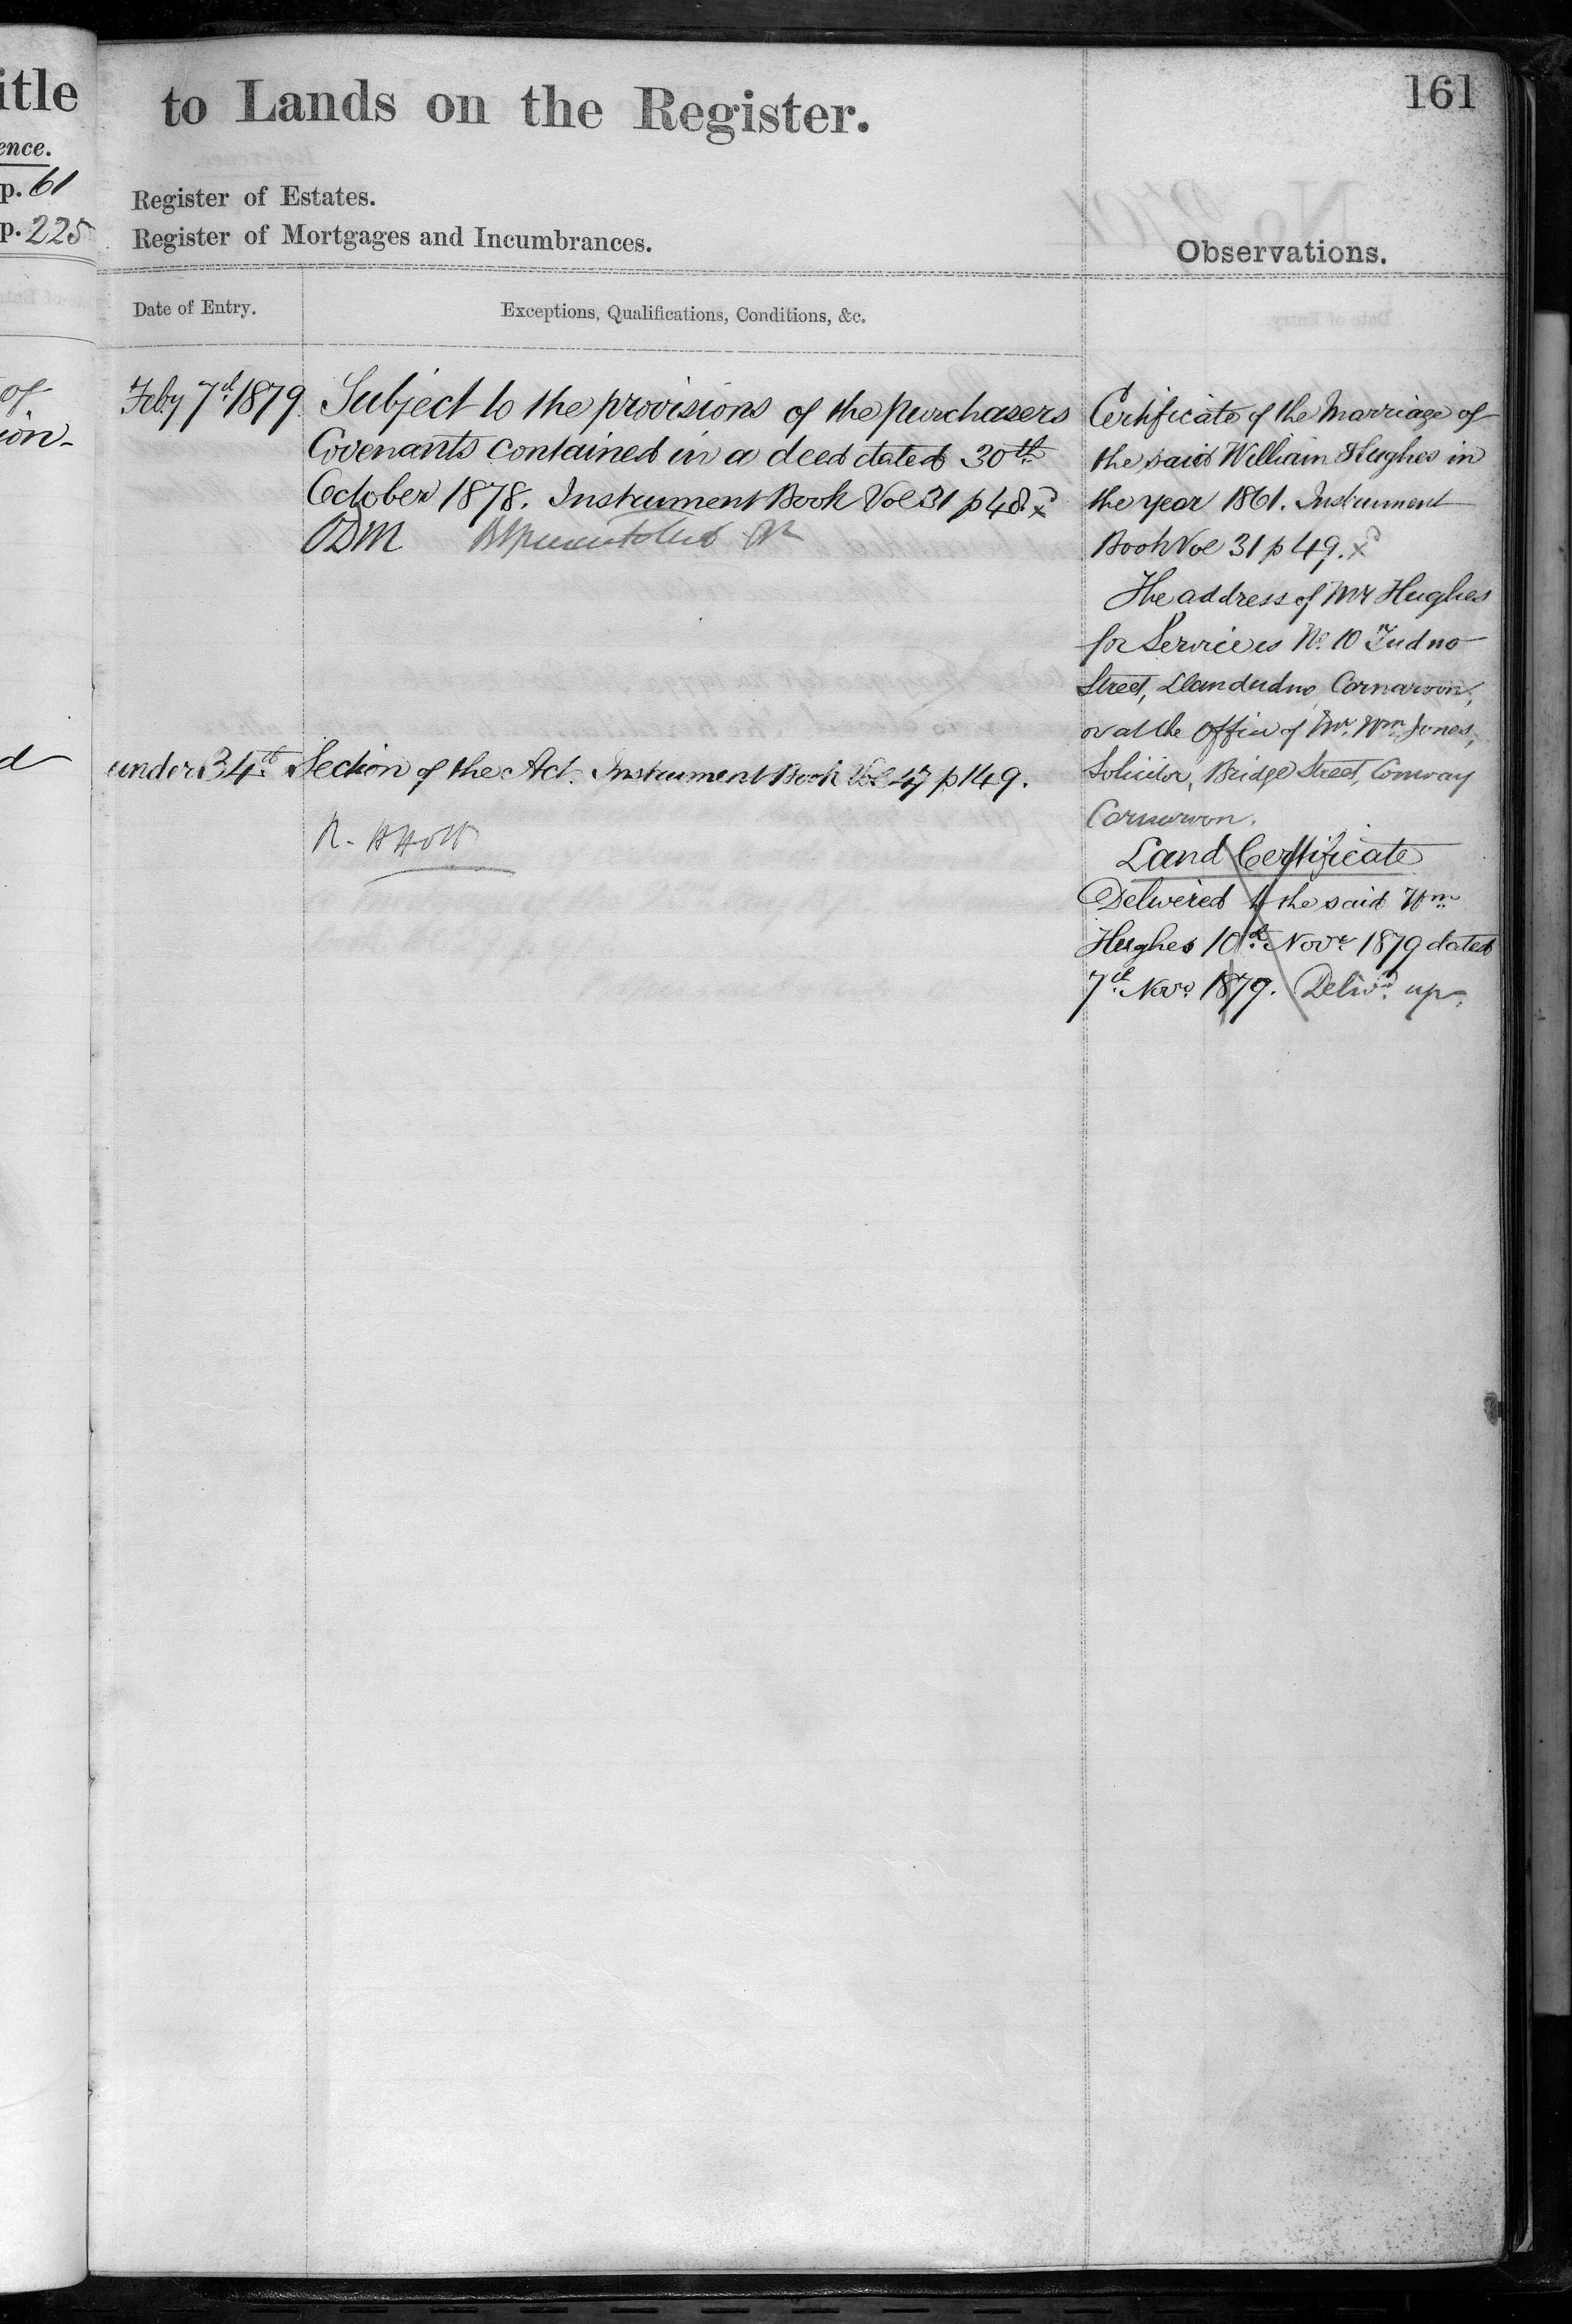 itle
ence.
p. 61
p. 225
of
ion-
d
161
to Lands on the Register.
Register of Estates.
Register of Mortgages and Incumbrances.
Observations.
Date of Entry.
Exceptions, Qualifications, Conditions, &c.
Feby 7th 1879. Subject to the provisions of the purchasers
Covenants contained in a deed dated 30th
October 1878. Instrument Book Vol 31 p 48. x
ODM
under 34th Section of the Act. Instrument Book Vol 47 p 149.
R. H Holt
Certificate of the Marriage of
the said William Hughes in
the year 1861. Instrument
Book Vol 31 p 49. x
The address of Mr Hughes
for Service is No. 10 Tudno
Street, Llandudno, Carnarvon,
or at the Office of Mr. Wm. Jones,
Solicitor, Bridge Street, Conway
Carnarvon.
Land Certificate
Delivered to the said Wm
Hughes 10th Novr 1879 dated
7th Novr 1879. Delivd. up.